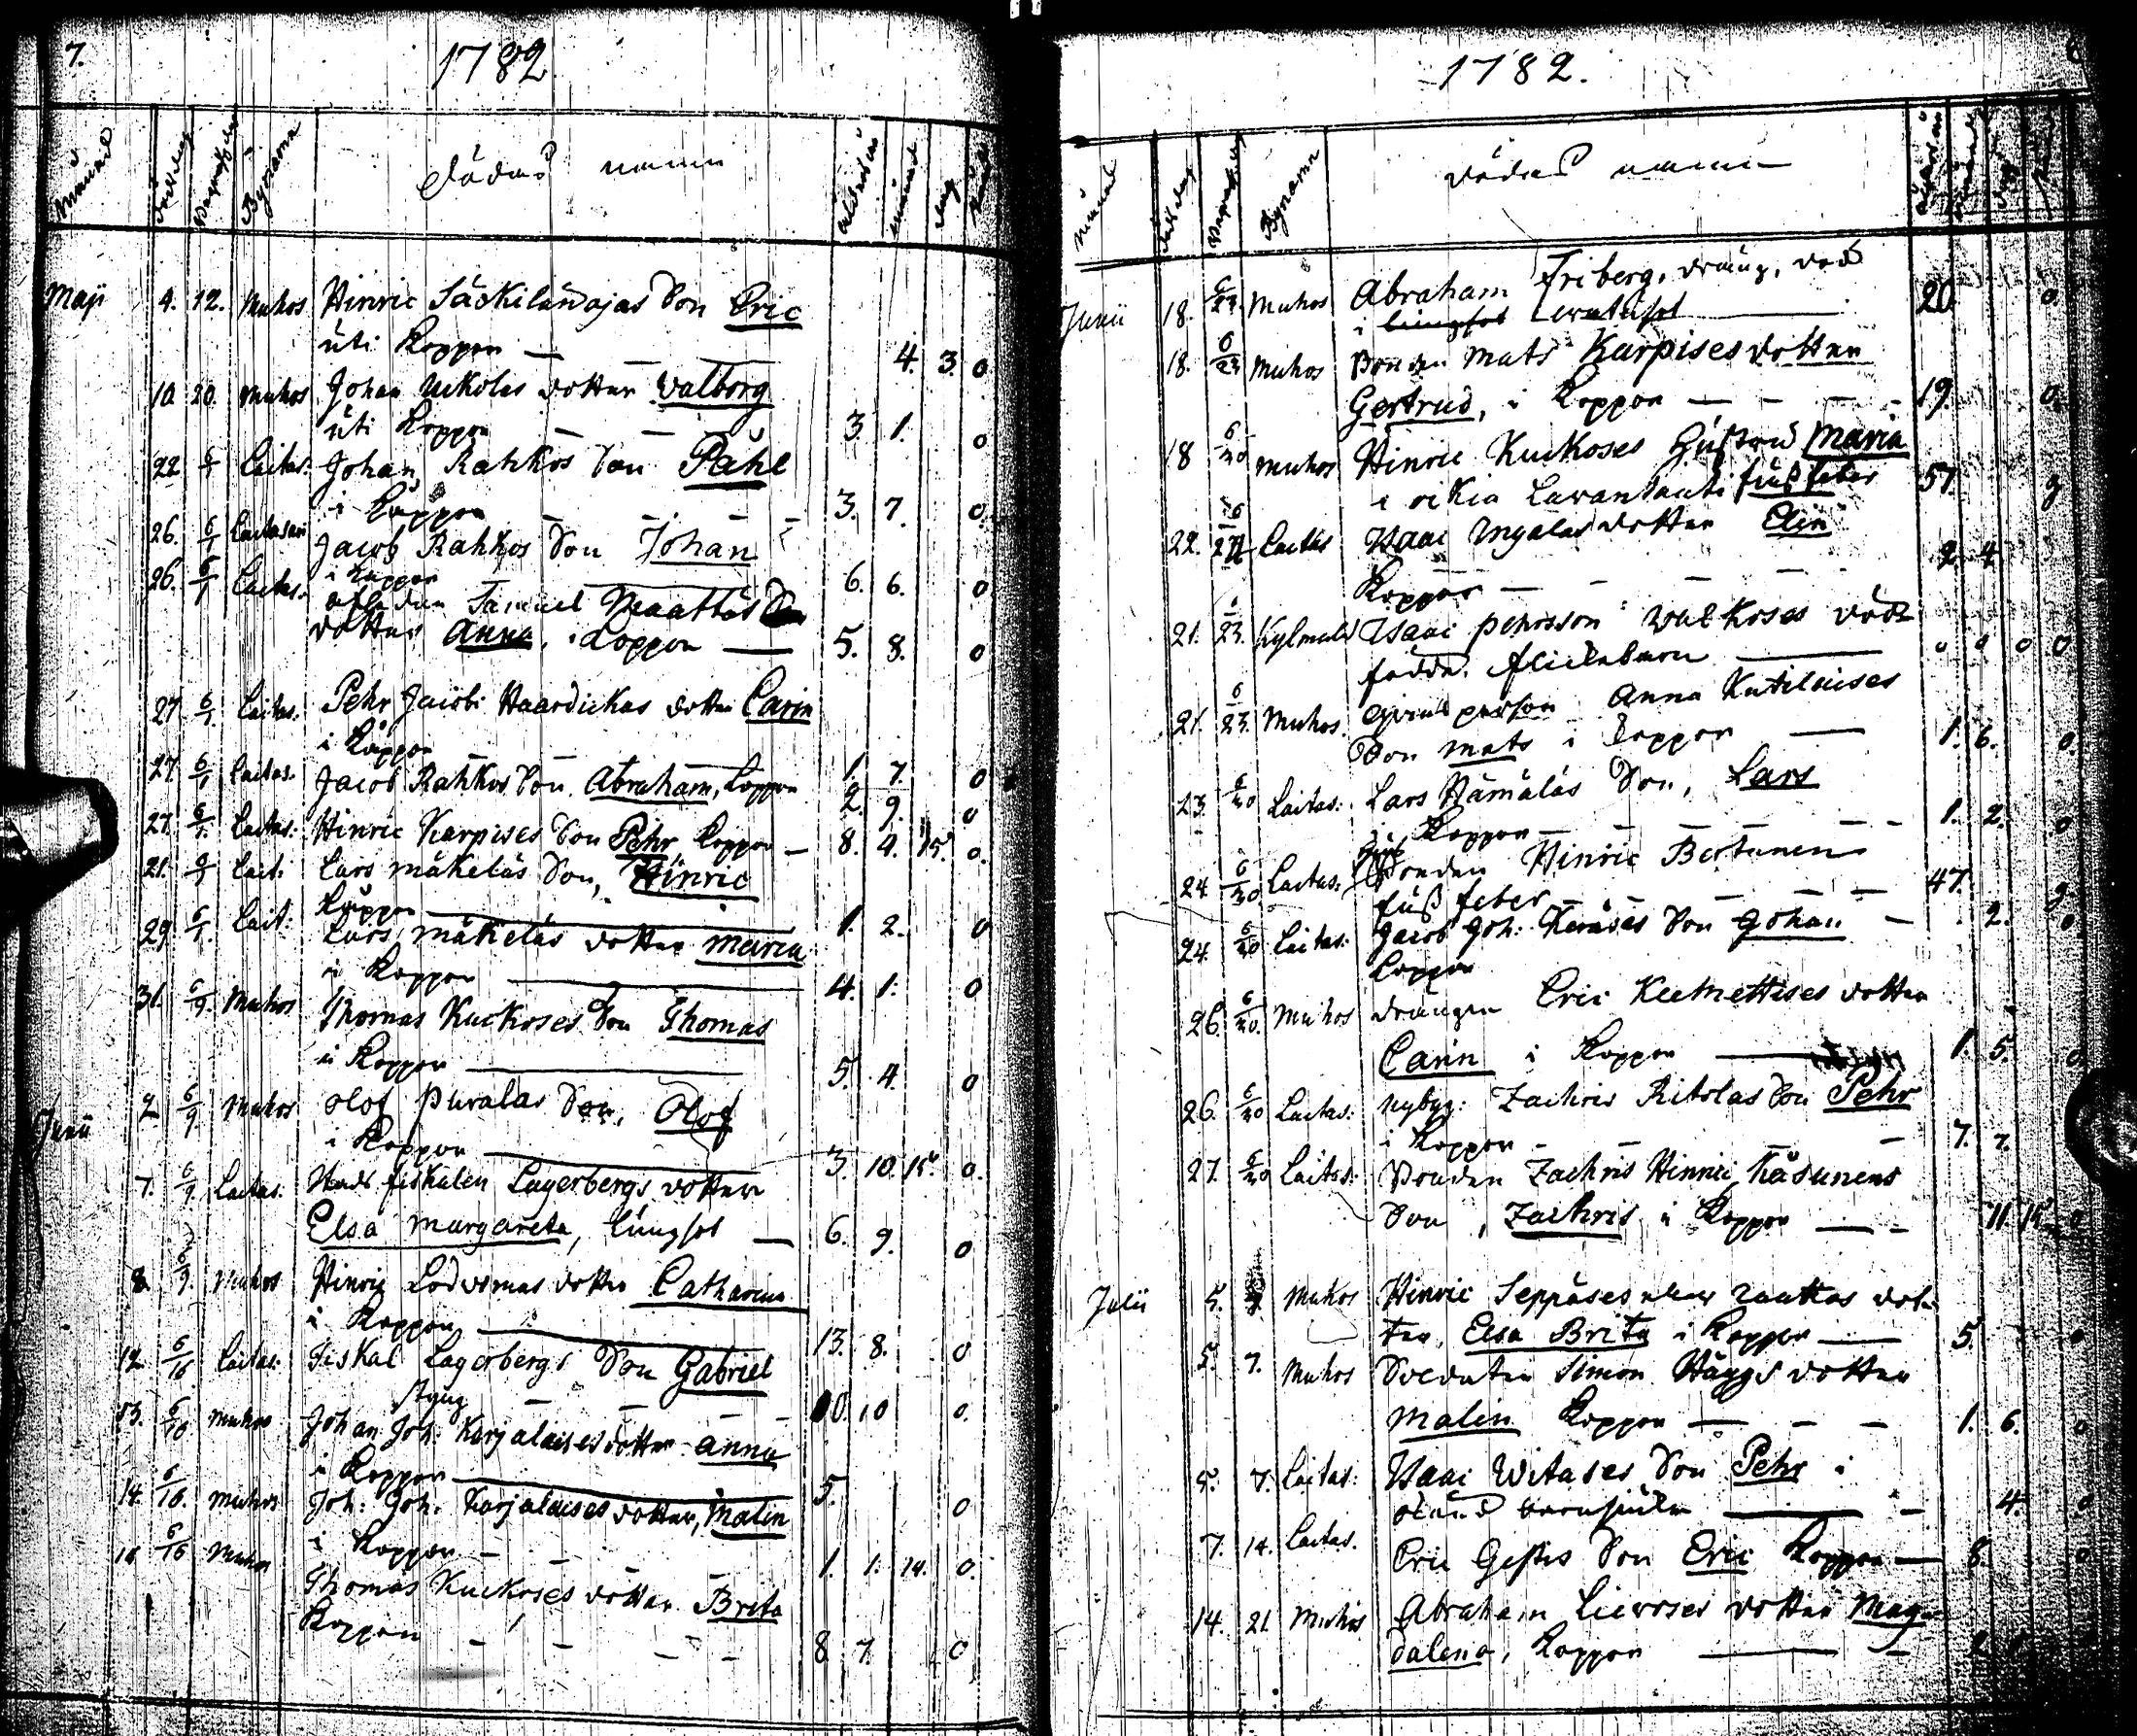 7.
1782
Månad
Dödedag
Byname
Dödas namn
månad
dag
Maji 4. 12. Muhos Hinric Säckiländajas Son Eric
uti Koppor — 4. 3. 0
10 20. Muhos Johan Uckolas dotter Valborg
uti Koppor — 3. 1. 0
22 6/1 Laitas: Johan Rahkos Son Påhl
i Koppor — 3. 7. 0.
26. 6/1 Laitasari Jacob Rahkos Son Johan
i Koppor 6. 6. 0
26. 6/1 Laitas. Samuel Maattas
dotter Anna, i Koppor — 5. 8. 0
27 6/1 Laitas. Pehr Jacobi Haardickas dotter Carin
i Koppor 1. 7. 0
27 6/1 Laitas. Jacob Rahkos Son Abraham, Koppor 2. 9. 0
27. 6/1. Laitas: Hinric Karpises Son Pehr Koppor — 8. 4. 15. 0.
21. 6/9 Lait. Lars Mäkeläs Son, Hinric
Koppor 1. 2. 0
29 6/1. Lait: Lars Mäkeläs dotter Maria
i Koppor 4. 1. 0
31. 6/9. Muhos Thomas Kuckoses Son Thomas
i Koppor 5. 4. 0
Junii 2 6/9. Muhos Olof Puralas Son, Olof
i Koppor 3. 10 15. 0.
7. 6/9 Laitas: Stads fiskalen Lagerbergs dotter
Elsa Margareta, lungsot — 6. 9. 0
8. 6/9. Muhos Hinric Lodvemas dotter Catharina
i Koppor 13. 8. 0
12 6/16 Laitas: Fiskal Lagerbergs Son Gabriel
styng — 10. 10 0.
13. 6/16 Muhos Johan Joh: Karjalaises dotter Anna
i Koppor 5. 0
14. 6/16. Muhos Joh: Joh: Karjalaises dotter, Malin
i Koppor — 1. 1. 14. 0.
6/16 Muhos Thomas Kuckoses dotter Brita
Koppor — 8 7. 0
1782.
månad
Byname
Dödas namn
Junii 18. 6/23. Muhos Abraham Friberg, dräng, död
i lungsot 20 0.
18. 6/23 Muhos Bonden Mats Karpises dotter
Gertrud, i Koppor — 19. 0.
18 6/30 Muhos Hinric Kuckoses Hustru Maria
i rikia Lavantauti 57. g
22. Laitas Isaac Ingalas dotter Elin
Koppor — 2 4
21. 6/23. Kylmälä Isaac Pehrsson Walkoses död
födde flickebarn 0 0 0 0
21. 6/23. Muhos. Anna Kutilaises
Son Mats i Koppor — 1. 6. 0.
23. 6/30 Laitas: Lars Hämäläs Son, Lars
i Koppor — 1. 2. 0
24 6/30 Laitas: Bonden Hinric Bertunens
feber — 47. g
24. 6/30 Laitas: Jacob Joh: Keräses Son Johan — 2. 0.
Koppor
26. 6/30. Muhos drängen Eric Klemettises dotter
Carin i Koppor — 1. 5. 0
26. 6/30 Laitas: nybyg: Zachris Ritolas Son Pehr
i Koppor — 7. 7.
27. 6/30 Laitas: Bonden Zachris Hinric Räsunens
Son, Zachris i Koppor — 11 15 0
Julii 5. 7 Muhos Hinric Seppäses eller Raattas dot-
ter, Elsa Brita i Koppor — 5. 0
5. 7. Muhos Soldaten Simon Häggs dotter
Malin Koppor — 1. 6. 0
5. 7. Laitas: Isaac Witases Son Pehr i
okänd barnsjuka — 4. 0
7. 14. Laitas. Eric Son Eric Koppor — 8. 0
14. 21. Muhos Abraham Lievoses dotter Mag-
dalena, Koppor —